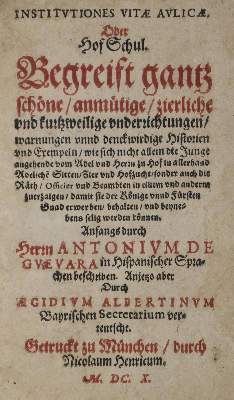 INSTITVTIONES VITÆ AVLICÆ,
Oder
Hof Schul.
Begreift gantz
schöne / anmütige / zierliche
vnd kurtzweilige vnderrichtungen /
warnungen vnnd denckwirdige Historien
vnd Exempeln / wie sich nicht allein die Junge
angehende vom Adel vnd Herrn zu Hof in allerhand
Adeliche Sitten / Zier vnd Hofzucht / sonder auch die
Räth / Officier vnd Beambten in einem vnd anderm
zuerzaigen / damit sie der Könige vnnd Fürsten
Gnad erwerben / behalten / vnd beyne-
bens selig werden können.
Anfangs durch
Herrn ANTONIVM DE
GVEVARA in Hispanischer Spra-
chen beschriben. Anjetzo aber
Durch
ÆGIDIVM ALBERTINVM
Bayrischen Secretarium ver-
teutscht.
Getruckt zu München / durch
Nicolaum Henricum.
M. DC. X.